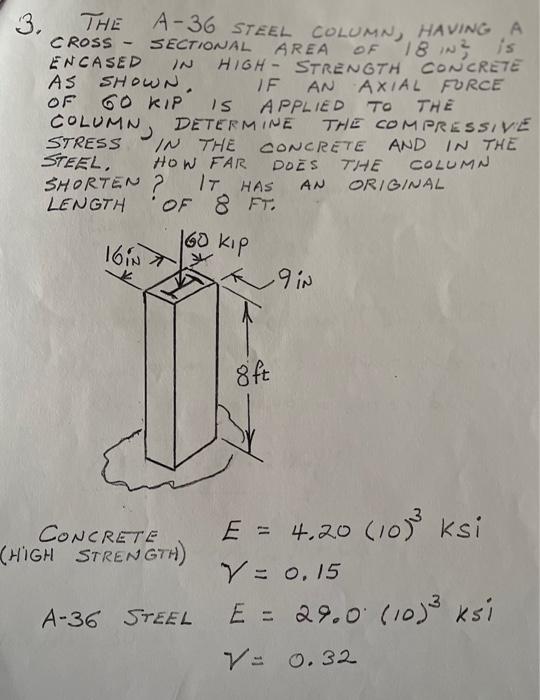 3. THE A-36 STEEL COLUMN, HAVING A
CROSS - SECTIONAL AREA OF 18 IN², IS
ENCASED IN HIGH - STRENGTH CONCRETE
AS SHOWN. IF AN AXIAL FORCE
OF 60 KIP IS APPLIED TO THE
COLUMN, DETERMINE THE COMPRESSIVE
STRESS IN THE CONCRETE AND IN THE
STEEL. HOW FAR DOES THE COLUMN
SHORTEN? IT HAS AN ORIGINAL
LENGTH OF 8 FT.
60 KIP
16 IN
9 IN
8 ft
CONCRETE E = 4.20 (10)³ ksi
(HIGH STRENGTH)
ν = 0.15
A-36 STEEL E = 29.0 (10)³ ksi
ν = 0.32